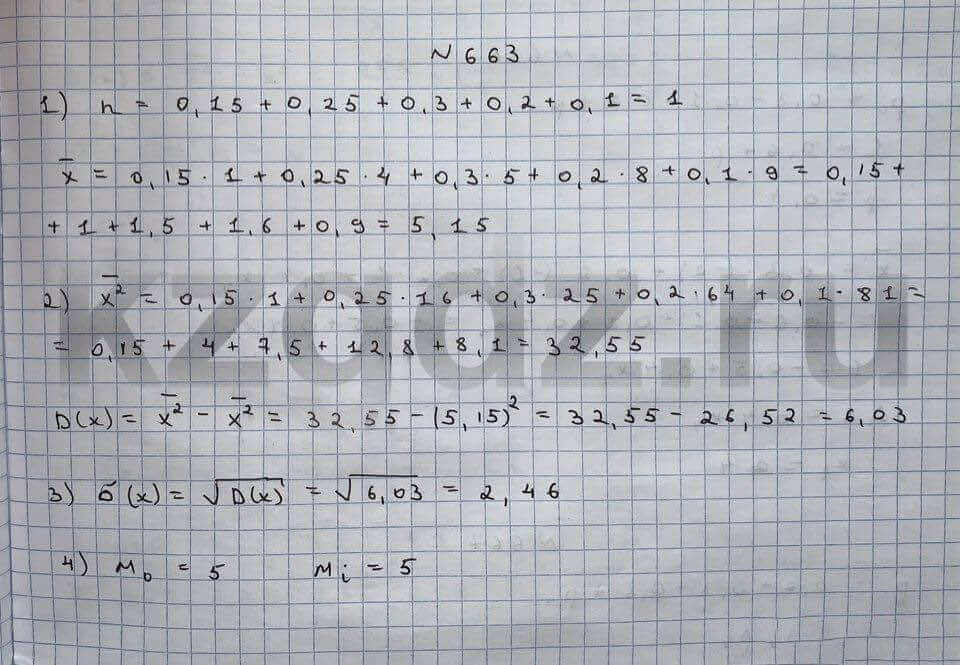 N 663
1) n = 0,15 + 0,25 + 0,3 + 0,2 + 0,1 = 1
x̄ = 0,15 · 1 + 0,25 · 4 + 0,3 · 5 + 0,2 · 8 + 0,1 · 9 = 0,15 +
+ 1 + 1,5 + 1,6 + 0,9 = 5,15
kzgdz.ru
2) x̄² = 0,15 · 1 + 0,25 · 16 + 0,3 · 25 + 0,2 · 64 + 0,1 · 81 =
= 0,15 + 4 + 7,5 + 12,8 + 8,1 = 32,55
D(x) = x̄² - x̄² = 32,55 - (5,15)² = 32,55 - 26,52 = 6,03
3) б(x) = √D(x) = √6,03 = 2,46
4) M₀ = 5 Mi = 5